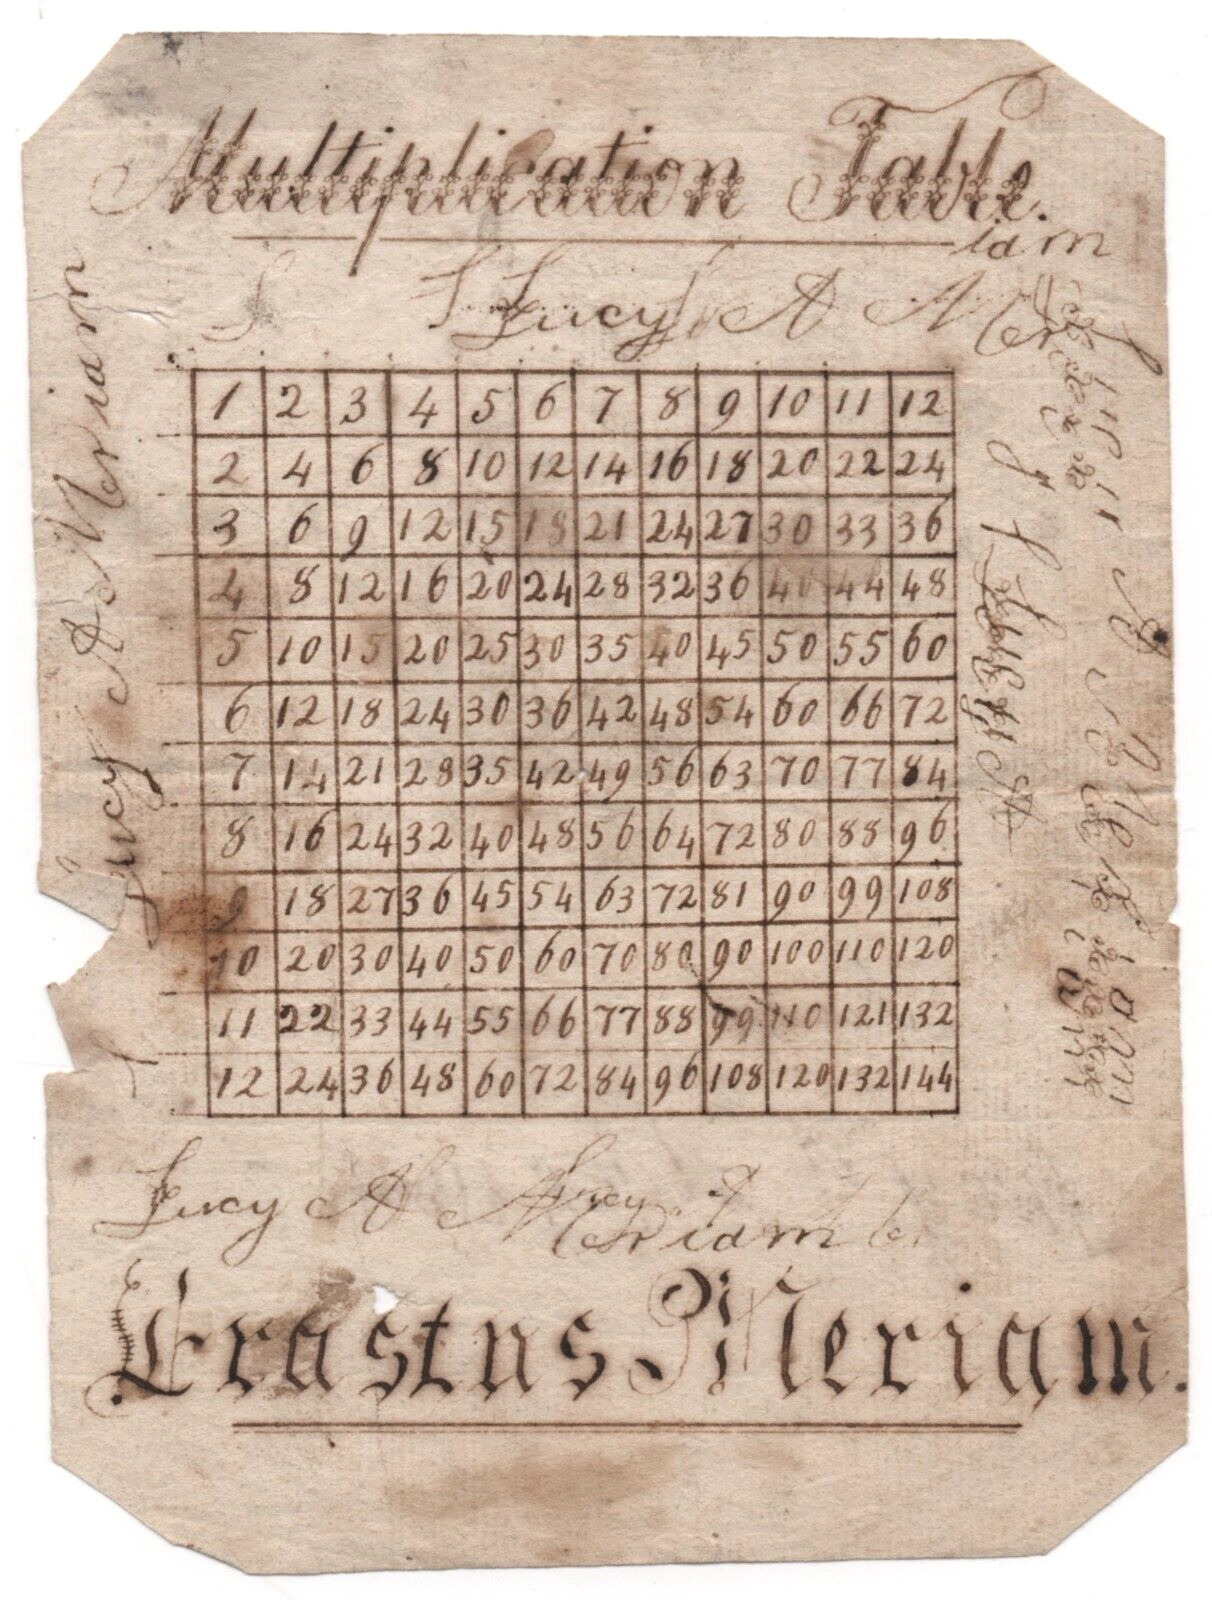 Multiplication Table.
iam
Lucy A Mer
1 2 3 4 5 6 7 8 9 10 11 12
2 4 6 8 10 12 14 16 18 20 22 24
3 6 9 12 15 18 21 24 27 30 33 36
4 8 12 16 20 24 28 32 36 40 44 48
5 10 15 20 25 30 35 40 45 50 55 60
6 12 18 24 30 36 42 48 54 60 66 72
7 14 21 28 35 42 49 56 63 70 77 84
8 16 24 32 40 48 56 64 72 80 88 96
9 18 27 36 45 54 63 72 81 90 99 108
10 20 30 40 50 60 70 80 90 100 110 120
11 22 33 44 55 66 77 88 99 110 121 132
12 24 36 48 60 72 84 96 108 120 132 144
Lucy A Meriam
Lucy A M Lucy
eriam er
Erastus Meriam.